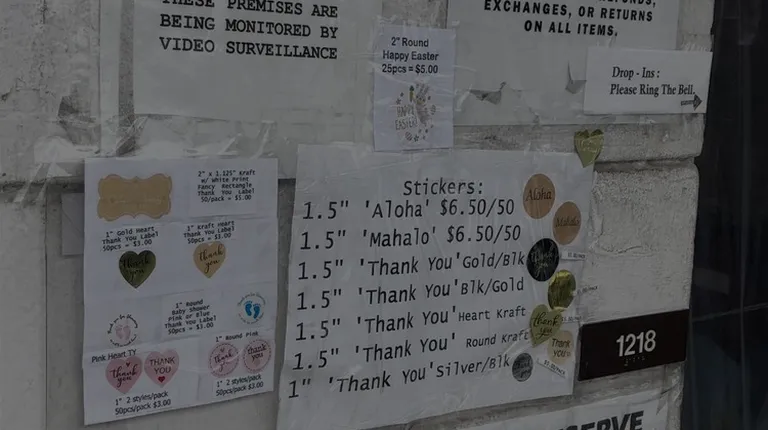 THESE PREMISES ARE
BEING MONITORED BY
VIDEO SURVEILLANCE
2" Round
Happy Easter
25pcs = $5.00
HAPPY
EASTER
EXCHANGES, OR RETURNS
ON ALL ITEMS.
Drop - Ins :
Please Ring The Bell.
2" x 1.125" Kraft
w/ White Print
Fancy Rectangle
Thank You Label
50/pack = $5.00
1" Gold Heart
Thank You Label
50pcs = $3.00
1" Kraft Heart
Thank You Label
50pcs = $3.00
Thank
you
Thank
you
1" Round
Baby Shower
Pink or Blue
Thank You Label
50pcs = $3.00
Pink Heart TY
Thank
you
THANK
YOU
1" 2 styles/pack
50pcs/pack $3.00
1" Round Pink
thank
you
1" 2 styles/pack
50pcs/pack $3.00
Stickers:
1.5" 'Aloha' $6.50/50
1.5" 'Mahalo' $6.50/50
1.5" 'Thank You'Gold/Blk
1.5" 'Thank You'Blk/Gold
1.5" 'Thank You'Heart Kraft
1.5" 'Thank You' Round Kraft
1" 'Thank You'Silver/Blk
Aloha
Mahalo
Thank
you
Thank
you
THANK
YOU
1218